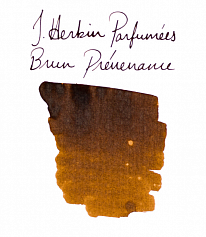 J. Herbin Parfumées
Brun Prévenance